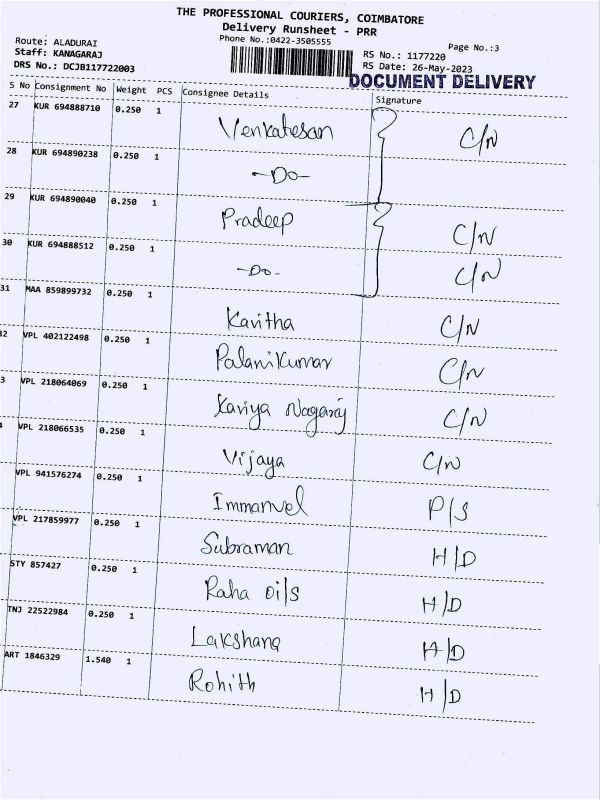 THE PROFESSIONAL COURIERS, COIMBATORE
Delivery Runsheet - PRR
Phone No.:0422-3505555
Route: ALADURAI
Staff: KANAGARAJ
DRS No.: DCJB117722003
Page No.:3
RS No.: 1177220
RS Date: 26-May-2023
DOCUMENT DELIVERY
S No Consignment No Weight PCS Consignee Details Signature
27 KUR 694888710 0.250 1 Venkatesan C/N
28 KUR 694890238 0.250 1 -Do-
29 KUR 694890040 0.250 1 Pradeep C/N
30 KUR 694888512 0.250 1 -Do- C/N
31 MAA 859899732 0.250 1 Kavitha C/N
32 VPL 402122498 0.250 1 Palanikumar C/N
3 VPL 218064069 0.250 1 Kaviya Nagaraj C/N
4 VPL 218066535 0.250 1 Vijaya C/N
VPL 941576274 0.250 1 Immanuel P/S
VPL 217859977 0.250 1 Subraman H/D
STY 857427 0.250 1 Raha oils H/D
TNJ 22522984 0.250 1 Lakshana H/D
ART 1846329 1.540 1 Rohith H/D